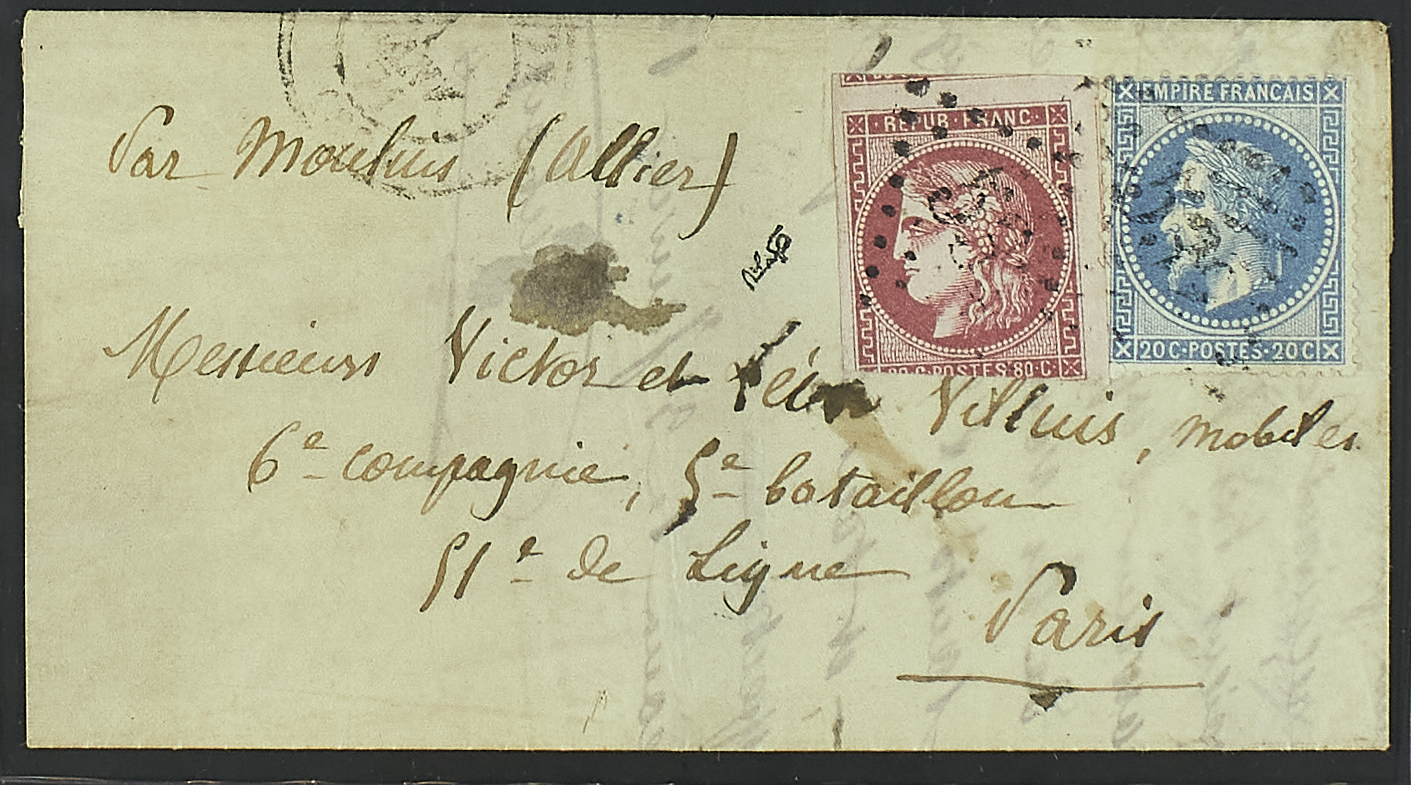 Par Moulins (Allier)
REPUB · FRANC ·
80 C · POSTES · 80 · C ·
EMPIRE FRANÇAIS
20 C · POSTES · 20 C
Messieurs Victor et Léon Villuis, mobiles
6e compagnie, 5e bataillon
51e de Ligne
Paris